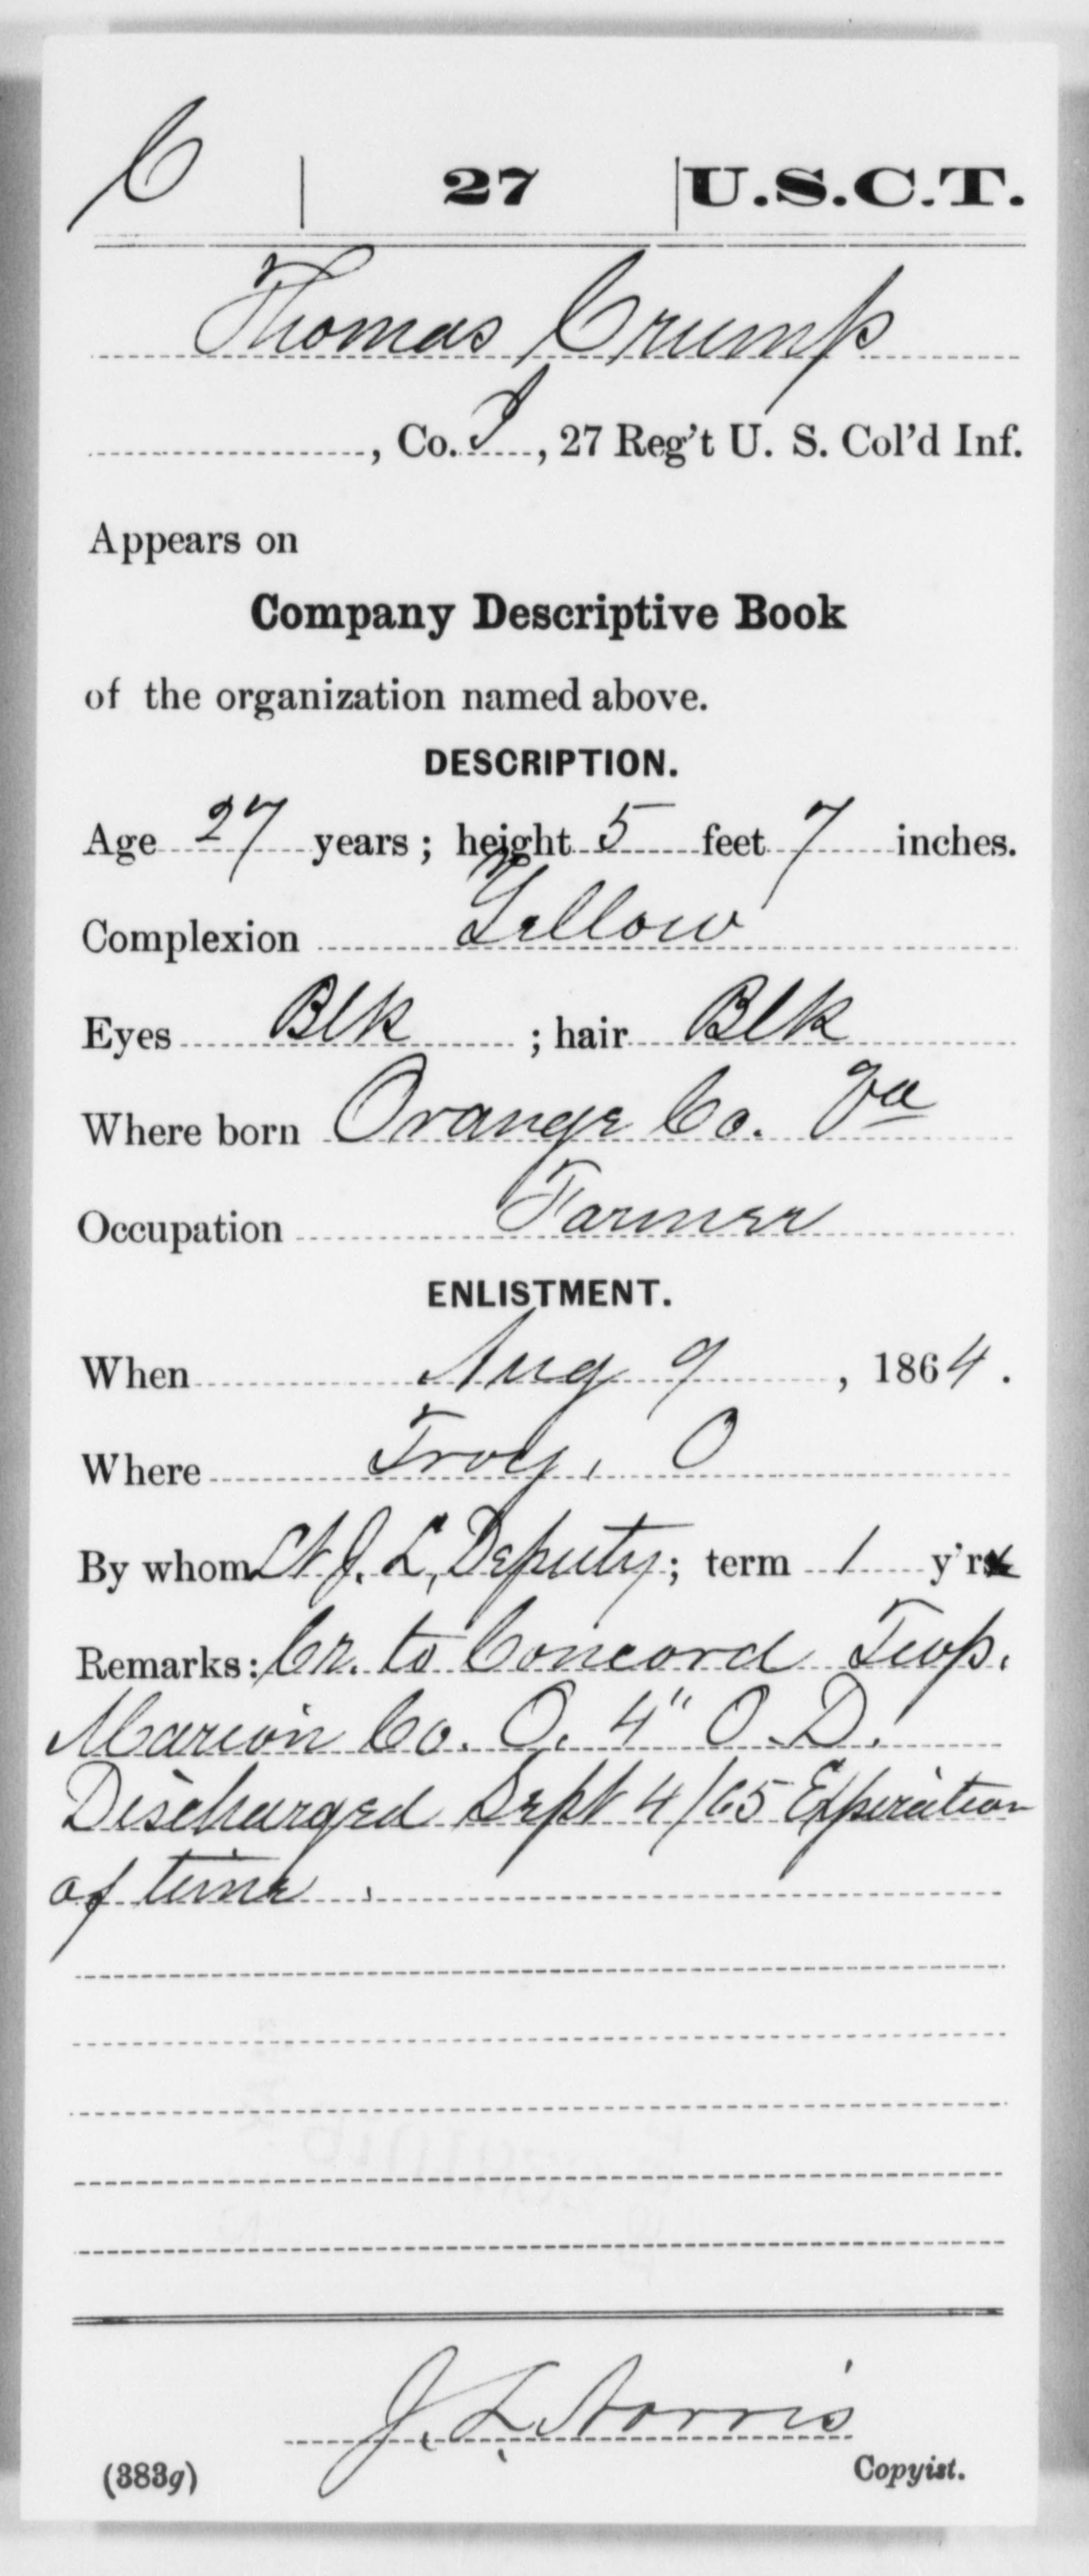 C | 27 | U.S.C.T.
Thomas Crump
, Co. I, 27 Reg't U. S. Col'd Inf.
Appears on
Company Descriptive Book
of the organization named above.
DESCRIPTION.
Age 27 years; height 5 feet 7 inches.
Complexion Yellow
Eyes Blk; hair Blk
Where born Orange Co. Va
Occupation Farmer
ENLISTMENT.
When Aug 9, 1864.
Where Troy, O
By whom Lt J. L. Deputy; term 1 y'r
Remarks: Cr. to Concord Twp.
Marion Co. O. 4" O. D.
Discharged Sept 4/65 Expiration
of time.
J. L. Norris
(383g) Copyist.